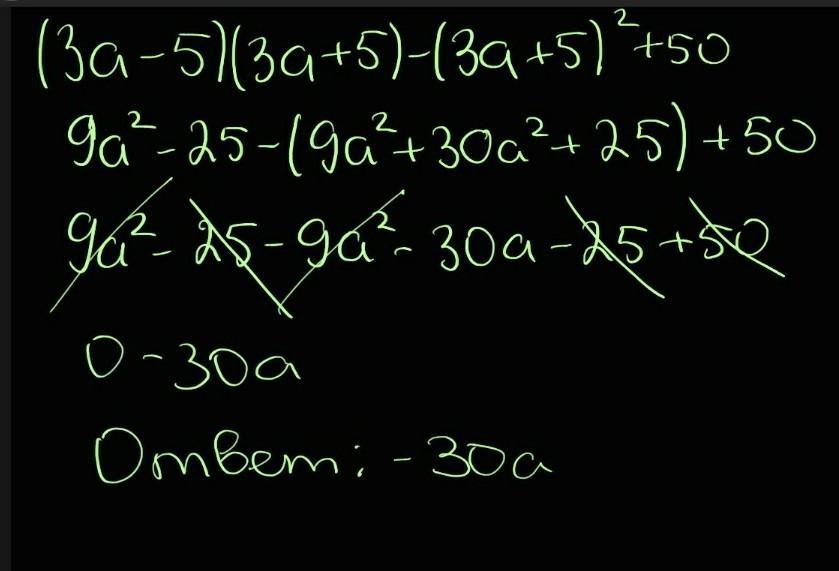 (3a-5)(3a+5)-(3a+5)²+50
9a²-25-(9a²+30a²+25)+50
9a²-25-9a²-30a-25+50
0-30a
Ответ: -30a